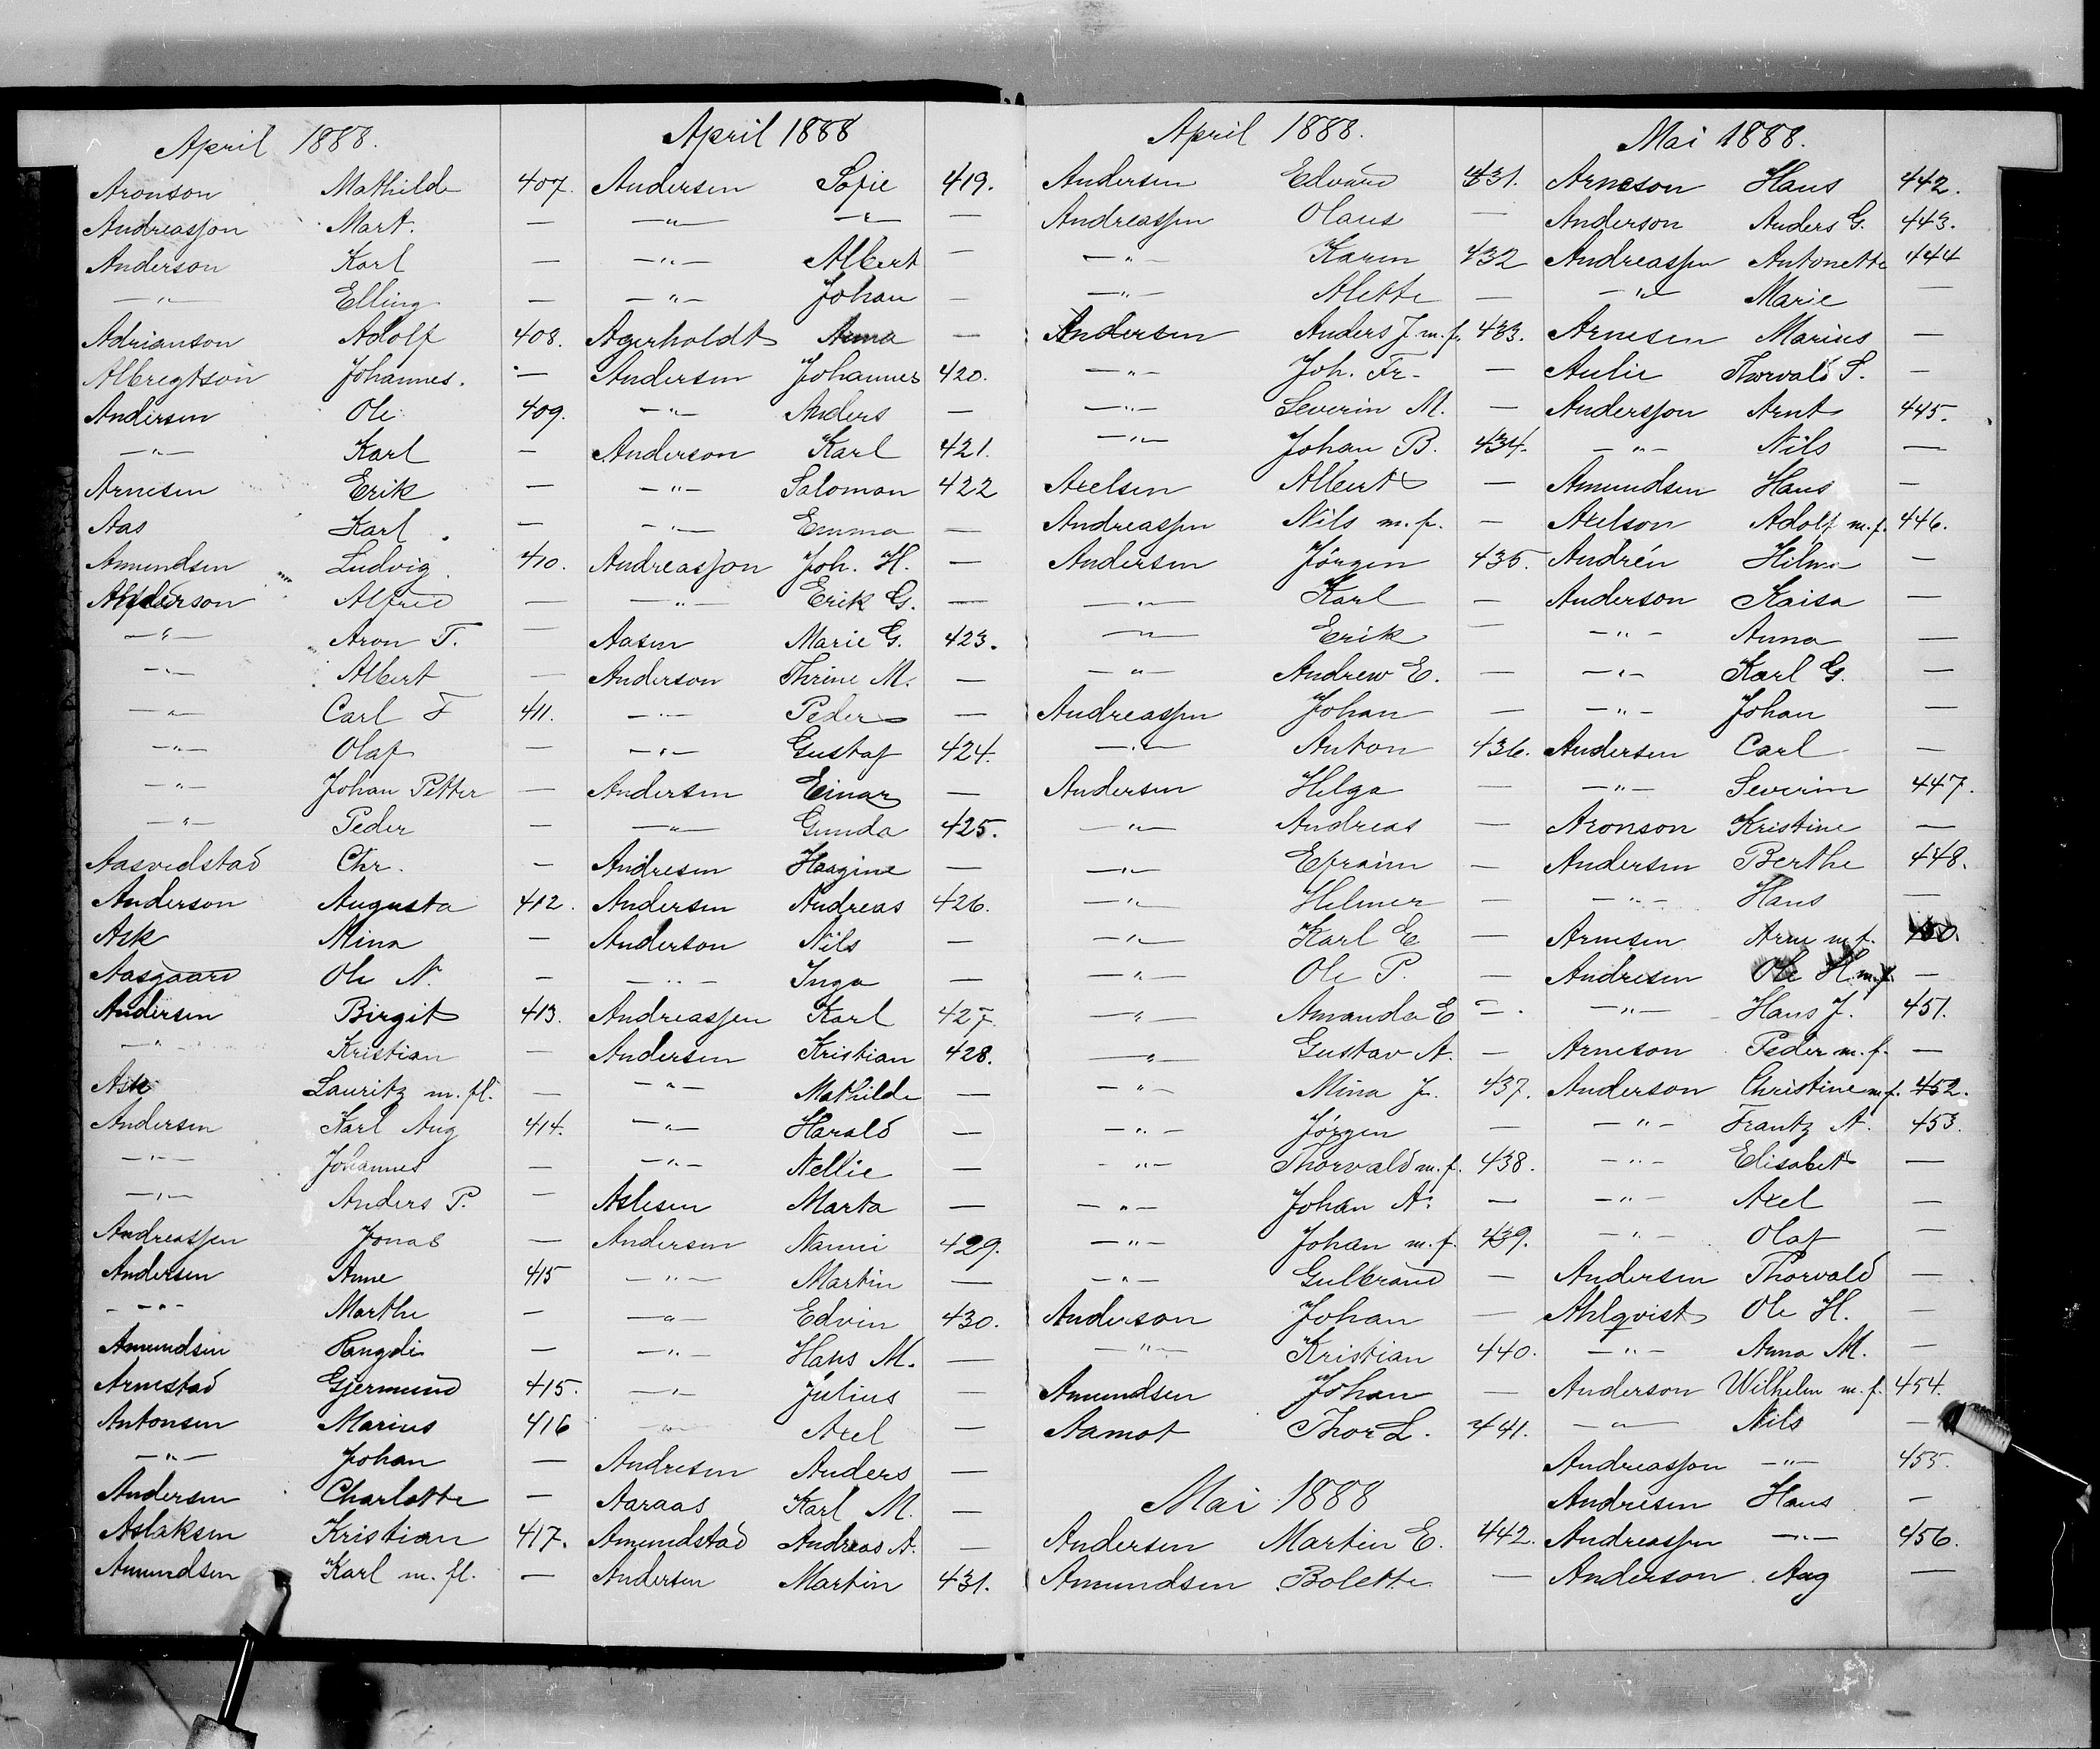 April 1888.
Aronson Mathilde 407.
Andreasson Mart. —
Anderson Karl —
—"— Elling —
Adrianson Adolf 408.
Albregtson Johannes. —
Andersen Ole 409.
—"— Karl —
Arnesen Erik —
Aas Karl. —
Amundsen Ludvig 410.
Anderson Alfred —
—"— Aron T. —
—"— Albert —
—"— Carl F 411.
—"— Olaf —
—"— Johan Petter —
—"— Peder —
Aasvedstad Chr. —
Anderson Augusta 412.
Ask Mina —
Aasgaard Ole N. —
Andersen Birgit 413.
—"— Kristian —
Ask Lauritz m. fl. —
Andersen Karl Aug 414.
—"— Johannes —
—"— Anders P. —
Andreassen Jonas —
Andersen Anne 415
—"— Marthe —
Amundsen Rangdi —
Arnestad Gjermund 415.
Antonsen Marius 416
—"— Johan —
Andersen Charlotte —
Aslaksen Kristian 417.
Amundsen Karl m. fl. —
April 1888
Andersen Sofie 419.
—"— —"— —
—"— Albert —
—"— Johan —
Agerholdt Anna —
Andersen Johannes 420.
—"— Anders —
Anderson Karl 421.
—"— Salomon 422
—"— Emma —
Andreasson Joh. H. —
—"— Erik G. —
Aasen Marie G. 423.
Anderson Thrine M. —
—"— Peder —
—"— Gustaf 424.
Andersen Einar —
—"— Gunda 425.
Andresen Haagine —
Andersen Andreas 426.
Anderson Nils —
—"— Inga —
Andreassen Karl 427.
Andersen Kristian 428.
—"— Mathilde —
—"— Harald —
—"— Nellie —
Aslesen Marta —
Andersen Nanni 429.
—"— Martin —
—"— Edvin 430.
—"— Hans M. —
—"— Julius —
—"— Axel —
Andresen Anders —
Aaraas Karl M. —
Amundstad Andreas A. —
Andersen Martin 431.
April 1888.
Andersen Edvard 431.
Andreassen Olaus —
—"— Karen 432
—"— Alette —
Andersen Anders J. m. f. 433.
—"— Joh. Fr. —
—"— Severin M. —
—"— Johan B. 434.
Axelsen Albert —
Andreassen Nils m. f. —
Andersen Jørgen 435.
—"— Karl —
—"— Erik —
—"— Andrew E. —
Andreassen Johan —
—"— Anton 436.
Andersen Helga —
—"— Andreas —
—"— Efraim —
—"— Helmer —
—"— Karl E —
—"— Ole P. —
—"— Amanda E —
—"— Gustav A. —
—"— Mina J. 437.
—"— Jørgen —
—"— Thorvald m. f. 438.
—"— Johan A. —
—"— Johan m. f. 439.
—"— Gulbrand —
Anderson Johan —
—"— Kristian 440.
Amundsen Johan —
Aamot Thor L. 441.
Mai 1888
Andersen Martin E. 442.
Amundsen Bolette —
Mai 1888.
Arneson Hans 442.
Anderson Anders G. 443.
Andreassen Antonette 444
—"— Marie —
Arnesen Marius —
Aulie Thorvald S. —
Andersson Arnt 445.
—"— Nils —
Amundsen Hans —
Axelson Adolf m. f. 446.
Andrén Hilma —
Anderson Kaisa —
—"— Anna —
—"— Karl G. —
—"— Johan —
Andersen Carl —
—"— Severin 447.
Aronson Kristine —
Andersen Berthe 448.
—"— Hans —
Arnesen Arne m. f. 450.
Andresen Ole H m. f. —
—"— Hans J. 451.
Arneson Peder m. f. —
Anderson Christine m. f. 452.
—"— Frantz A. 453.
—"— Elisabet —
—"— Axel —
—"— Olaf —
Andersen Thorvald —
Ahlqvist Ole H. —
—"— Anna M. —
Anderson Wilhelm m. f. 454.
—"— Nils —
Andreasson —"— 455.
Andresen Hans —
Andreassen —"— 456.
Anderson Aug —